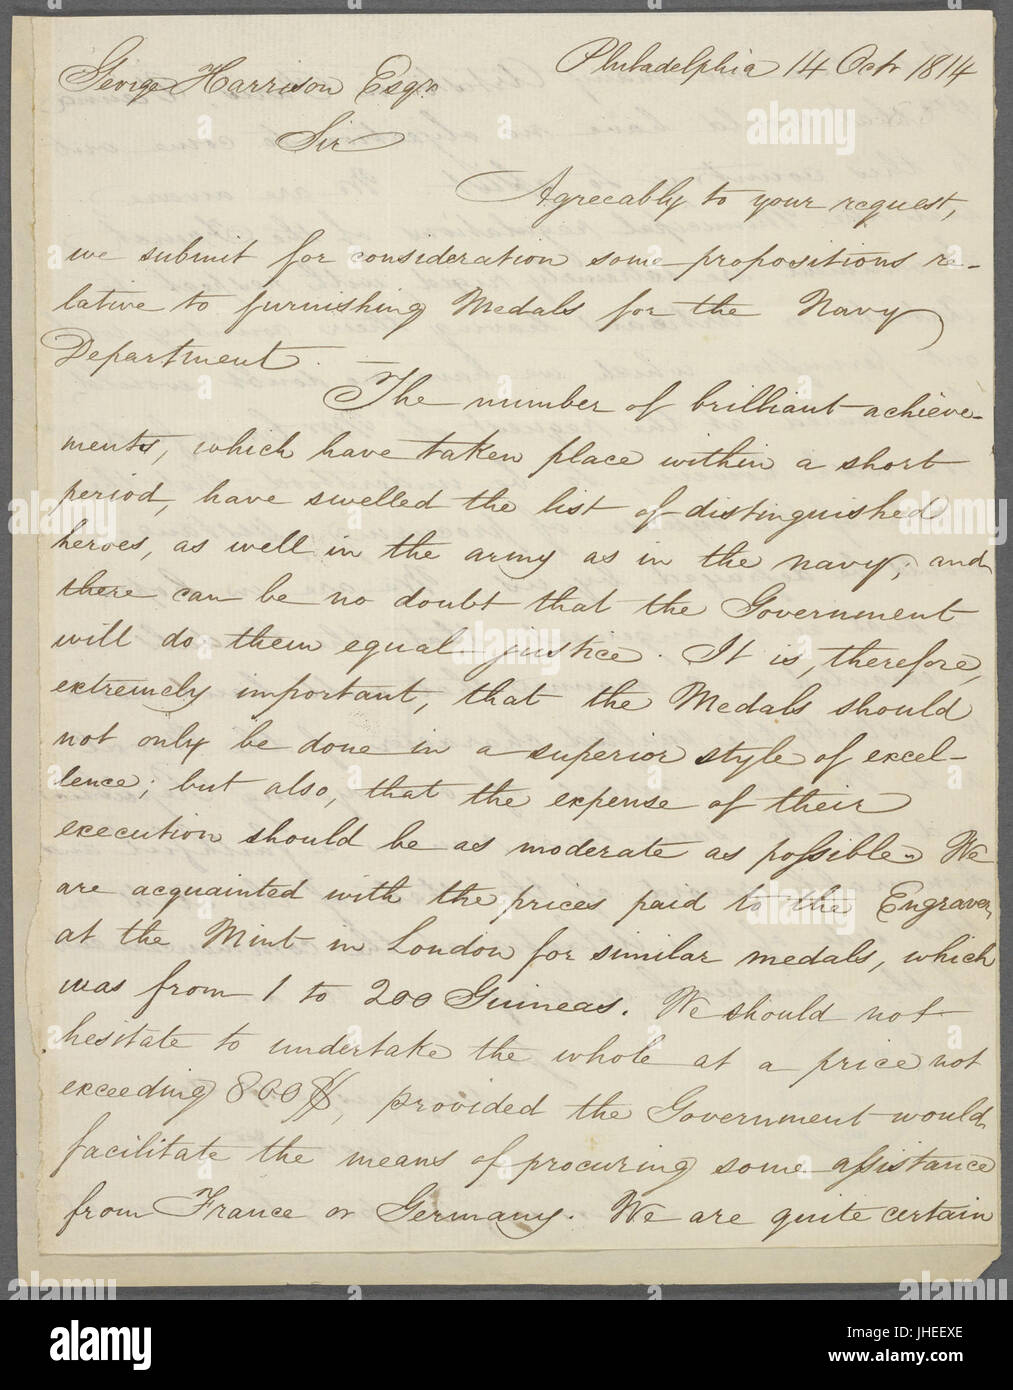 Philadelphia 14 Octr 1814
George Harrison Esqr.
Sir
Agreeably to your request,
we submit for consideration some propositions re-
lative to furnishing Medals for the Navy
Department. —
The number of brilliant achieve-
ments, which have taken place within a short
period, have swelled the list of distinguished
heroes, as well in the army as in the navy; and
there can be no doubt that the Government
will do them equal justice. It is, therefore,
extremely important, that the Medals should
not only be done in a superior style of excel-
lence; but also, that the expense of their
execution should be as moderate as possible. We
are acquainted with the prices paid to the Engraver
at the Mint in London for similar medals, which
was from 1 to 200 Guineas. We should not
hesitate to undertake the whole at a price not
exceeding 800$, provided the Government would
facilitate the means of procuring some assistance
from France or Germany. We are quite certain
alamy
Image ID: JHEEXE
www.alamy.com